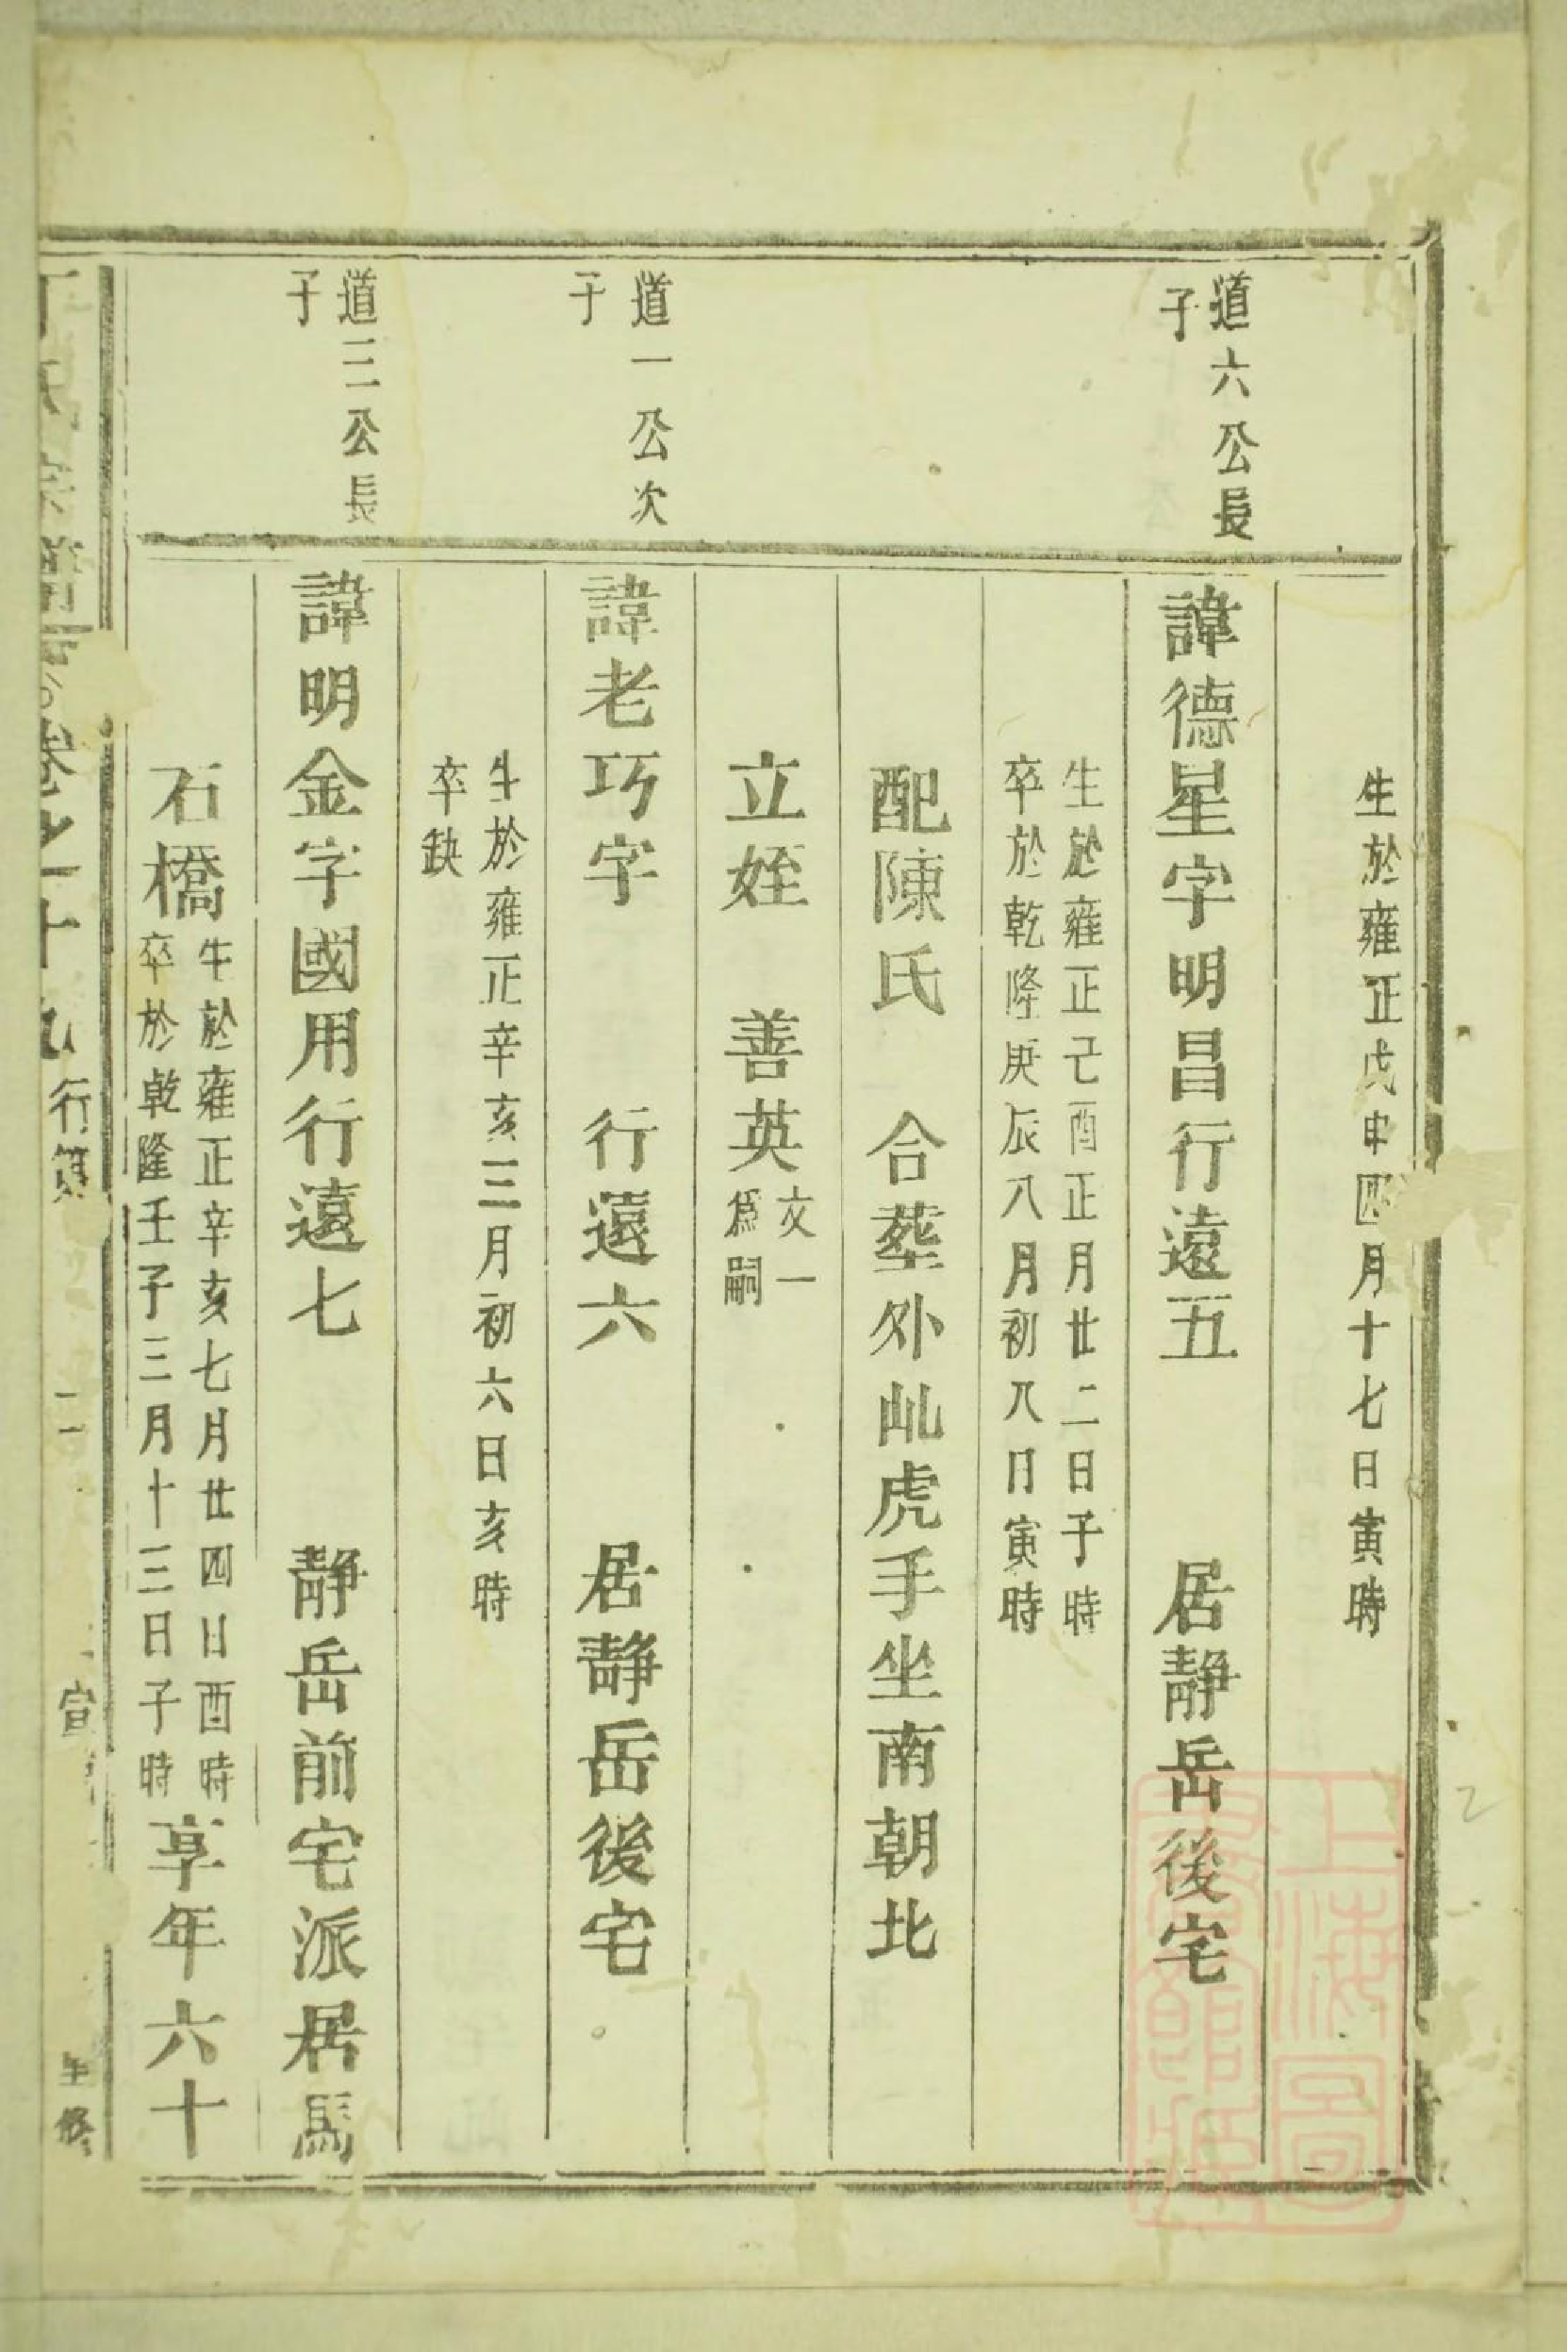 生於雍正戊申四月十七日寅時
道六公長
子
諱德星字明昌行遠五 居靜岳後宅
生於雍正己酉正月廿二日子時
卒於乾隆庚辰八月初八日寅時
配陳氏 合塟外乢虎手坐南朝北
立姪 善英
文一
為嗣
道一公次
子
諱老巧字 行遠六 居靜岳後宅
生於雍正辛亥三月初六日亥時
卒缺
道三公長
子
諱明金字國用行遠七 靜岳前宅派居馬
石橋
生於雍正辛亥七月廿四日酉時
卒於乾隆壬子三月十三日子時
享年六十
卷之十九 行第 二 宣 修
上海圖書館藏